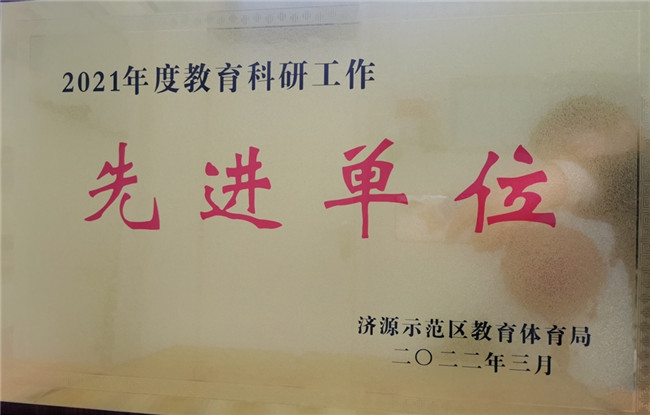 2021年度教育科研工作
先进单位
济源示范区教育体育局
二〇二二年三月